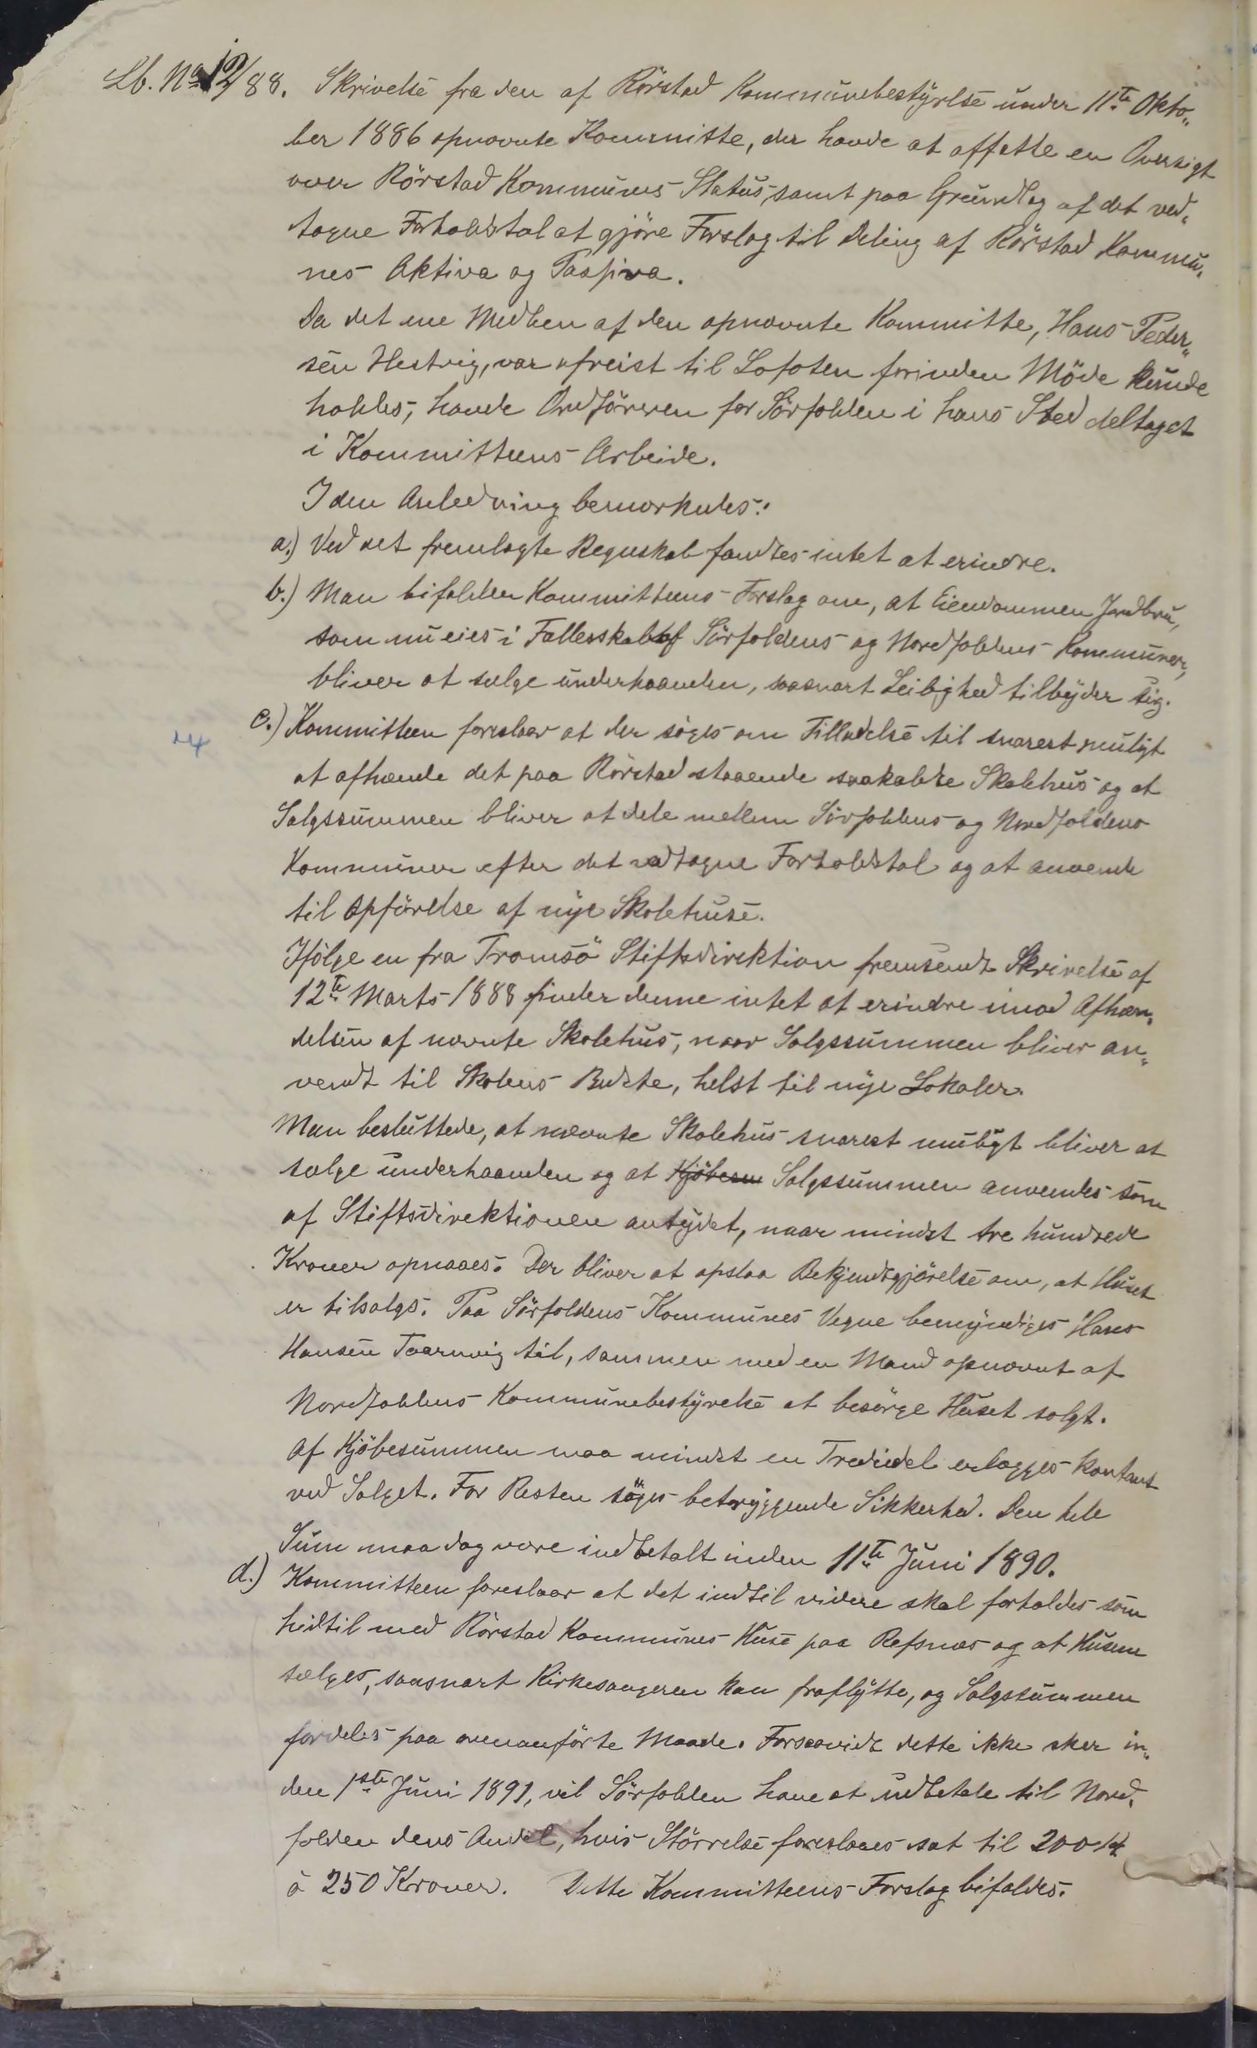 Lb. No 12/88. Skrivelse fra den af Rörstad Kommunebestyrelse under 11te Okto„
ber 1886 opnævnte Kommitte, der havde at affatte en Oversigt
over Rörstad Kommunes Status, samt paa Grundlag af det ved„
tagne Forholdstal at gjöre Forslag til Deling af Rörstad Kommu„
nes Aktiva og Passiva.
Da det ene Medlem af den opnævnte Kommitte, Hans Peder„
sen Hestvig, var afreist til Lofoten forinden Möde kunde
holdes, havde Ordföreren for Sörfolden i hans Sted deltaget
i Kommitteens Arbeide.
I den Anledning bemærkedes:
a.) Ved det fremlagte Regnskab fandtes intet at erindre.
b.) Man bifalder Kommitteens Forslag om, at Eiendommen Jordbru,
som nu eies i Fællesskab af Sörfoldens og Nordfoldens Kommuner,
bliver at sælge underhaanden, saasnart Leilighed tilbyder sig.
c.) Kommitteen foreslaar at der söges om Tilladelse til snarest muligt
at afhænde det paa Rörstad staaende saakaldte Skolehus og at
Salgssummen bliver at dele mellem Sörfoldens og Nordfoldens
Kommuner efter det vedtagne Forholdstal og at anvende
til Opförelse af nye Skolehuse.
Ifölge en fra Tromsö Stiftsdirektion fremsendt Skrivelse af
12te Marts 1888 finder denne intet at erindre imod Afhæn„
delsen af nævnte Skolehus, naar Salgssummen bliver an„
vendt til Skolens Bedste, helst til nye Lokaler.
Man besluttede, at nævnte Skolehus snarest muligt bliver at
sælge underhaanden og at Kjöbesu Salgssummen anvendes som
af Stiftsdirektionen antydet, naar mindst tre hundrede
Kroner opnaaes. Der bliver at opslaa Bekjendtgjörelse om, at Huset
er tilsalgs. Paa Sörfoldens Kommunes Vegne bemyndiges Hans
Hansen Tvaarnvig til, sammen med en Mand opnævnt af
Nordfoldens Kommunebestyrelse at besörge Huset solgt.
Af Kjöbesummen maa mindst en Trediedel erlægges kontant
ved Salget. For Resten söges betryggende Sikkerhed. Den hele
Sum maa dog være indbetalt inden 11te Juni 1890.
d.) Kommitteen foreslaar at det indtil videre skal forholdes som
hidtil med Rörstad Kommunes Huse paa Refsnæs og at Husene
sælges, saasnart Kirkesangeren kan fraflytte, og Salgssummen
fordeles paa ovenanförte Maade. Forsaavidt dette ikke sker in„
den 1ste Juni 1891, vil Sörfolden have at udbetale til Nord„
folden dens Andel, hvis Störrelse foreslaaes sat til 200
à 250 Kroner. Dette Kommitteens Forslag bifaldes.